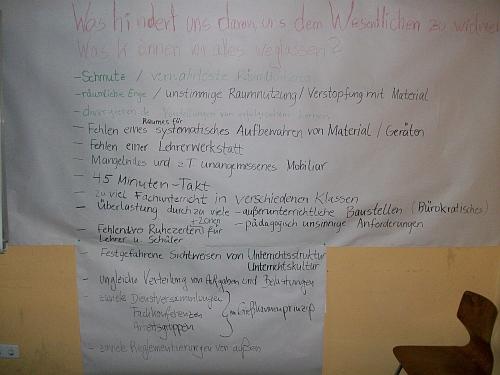 Was hindert uns daran, uns dem Wesentlichen zu widmen
Was können wir alles weglassen?
- Schmutz / verwahrloste Räumlichkeiten
- räumliche Enge / unstimmige Raumnutzung / Verstopfung mit Material
- divergierende Vorstellungen von erfolgreichem Lernen
- Fehlen eines Raumes für systematisches Aufbewahren von Material / Geräten
- Fehlen einer Lehrerwerkstatt
- Mangelndes und z T unangemessenes Mobiliar
- 45 Minuten-Takt
- zu viel Fachunterricht in verschiedenen Klassen
- Überlastung durch zu viele - außerunterrichtliche Baustellen (Bürokratisches)
- pädagogisch unsinnige Anforderungen
- Fehlende Ruhezeiten + zonen für
Lehrer u. Schüler
- Festgefahrene Sichtweisen von Unterrichtsstruktur
Unterrichtskultur
- ungleiche Verteilung von Aufgaben und Belastungen
- zuviele Dienstversammlungen
Fachkonferenzen
Arbeitsgruppen
im Gießkannenprinzip
- zuviele Reglementierungen von außen